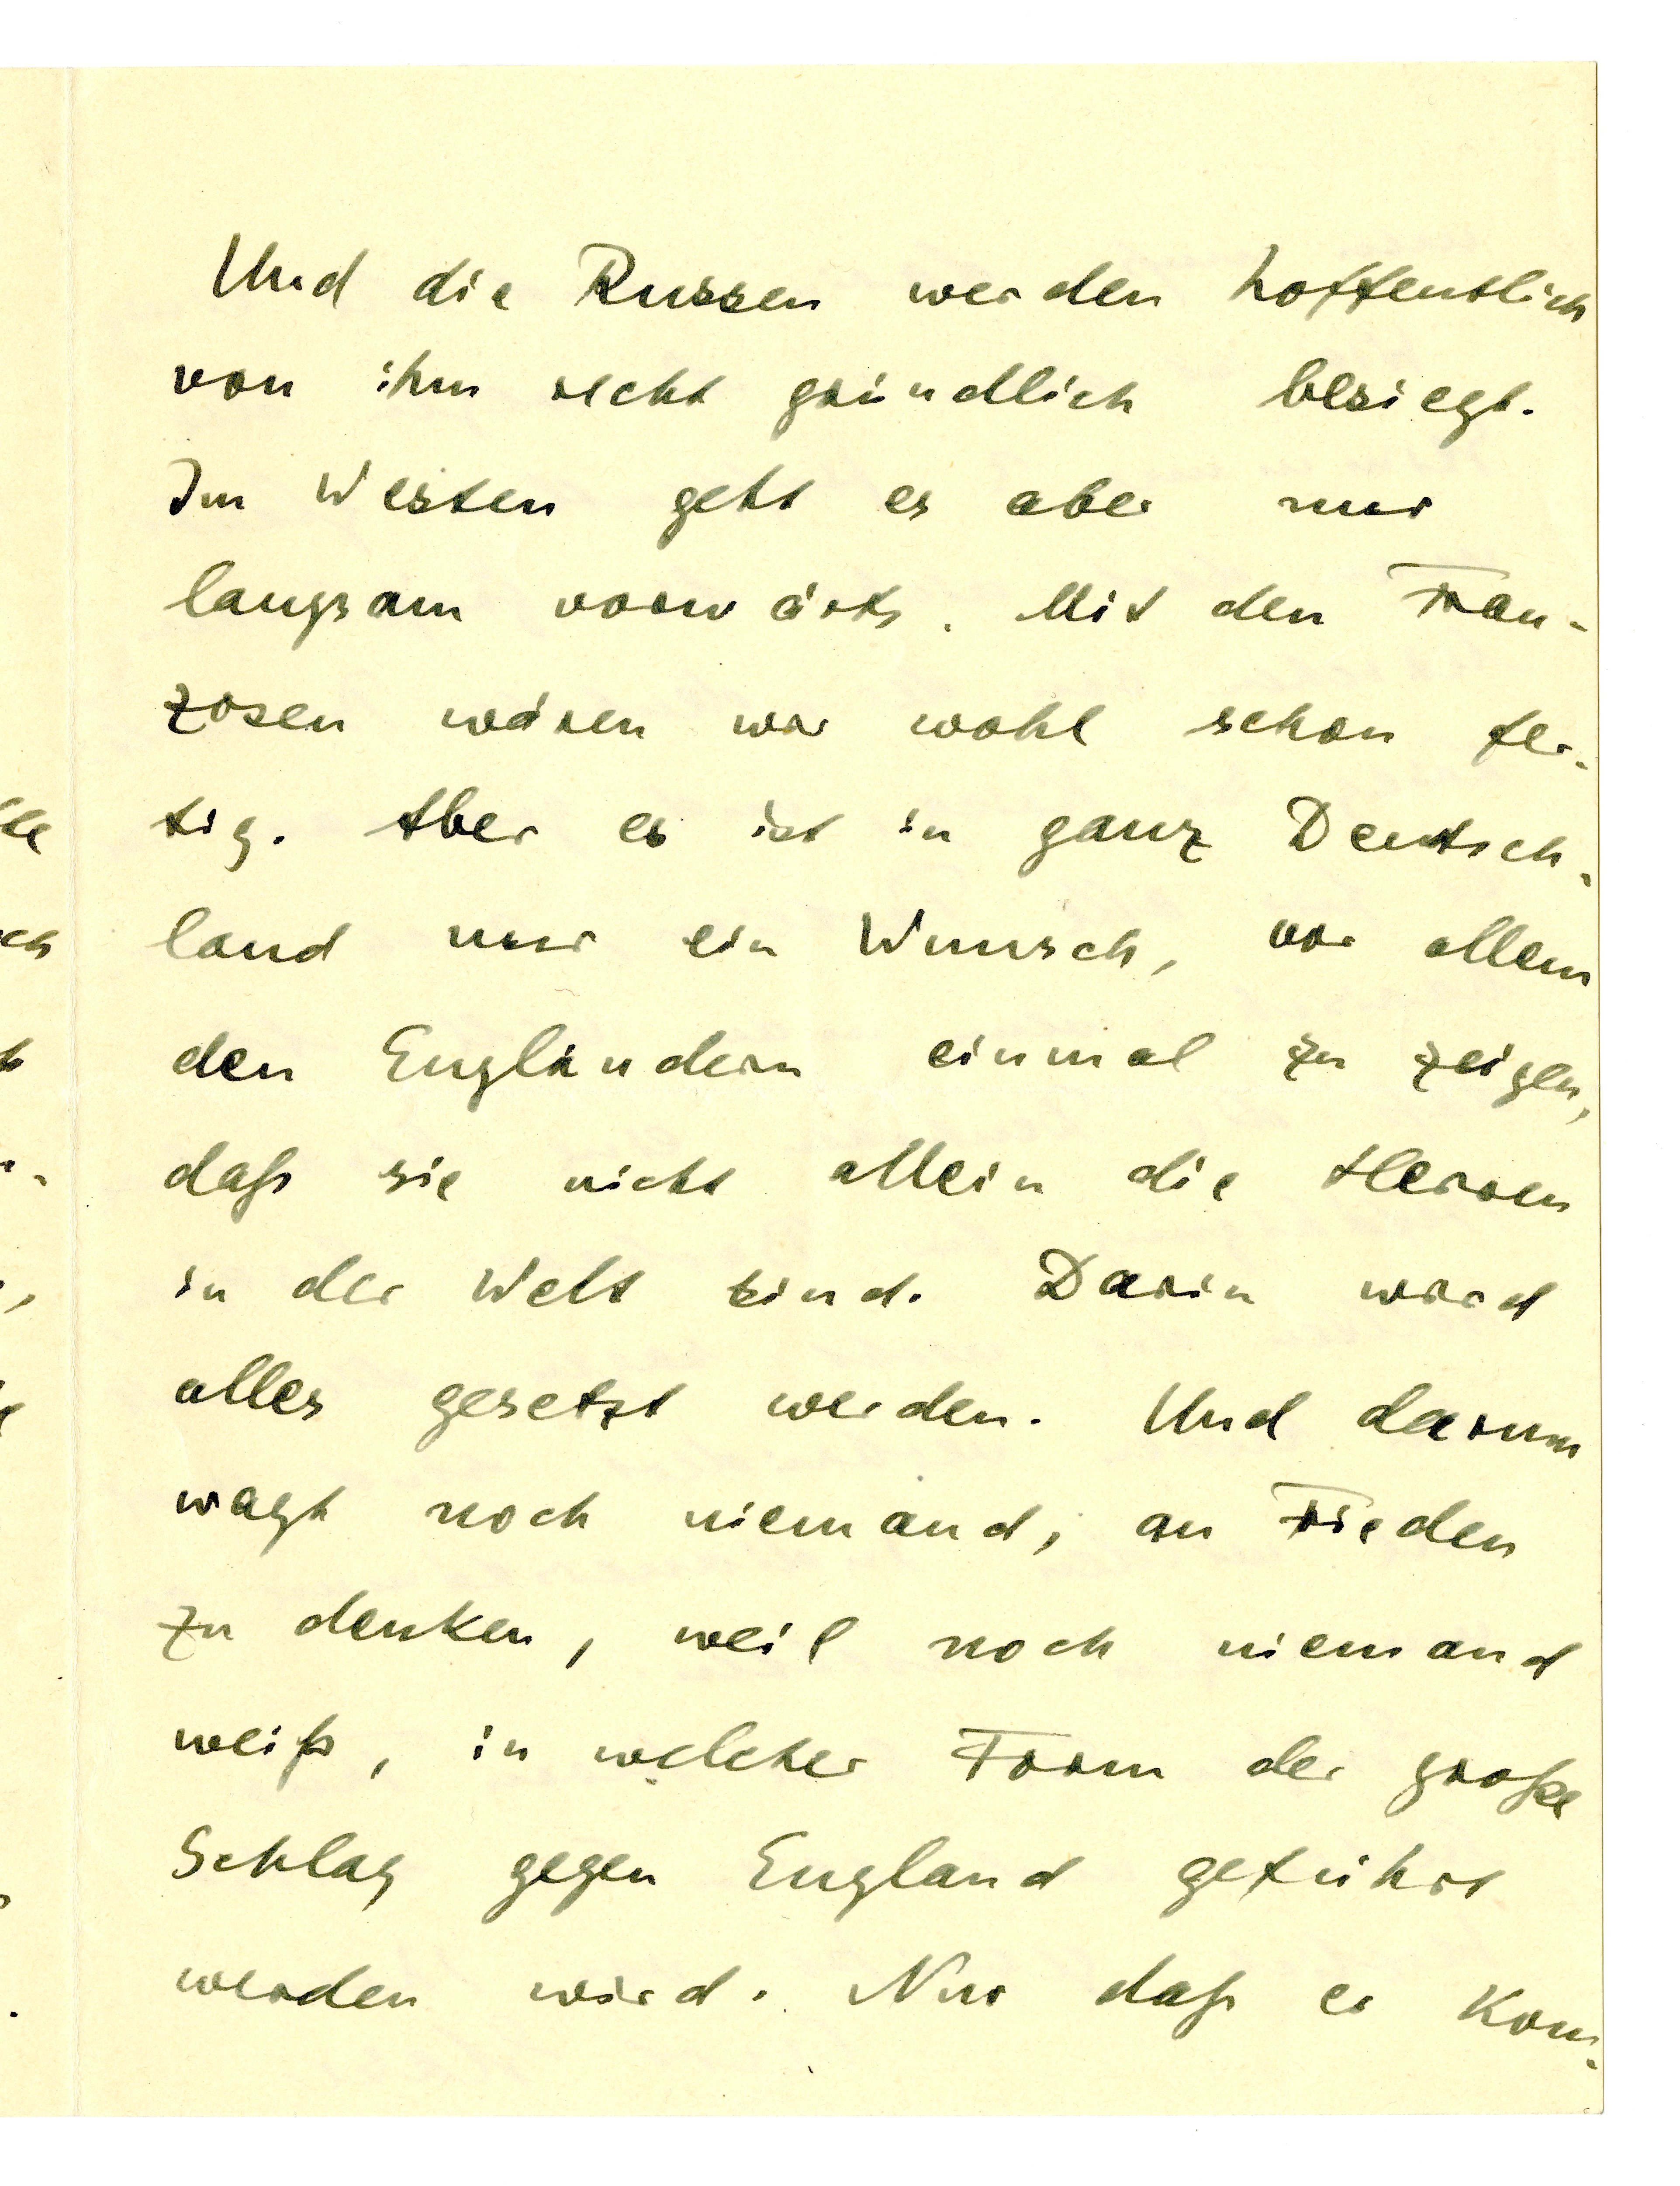 Und die Russen werden hoffentlich
von ihm recht gründlich besiegt.
Im Westen geht es aber nur
langsam vorwärts. Mit den Fran-
zosen wären wir wohl schon fer-
tig. Aber es ist in ganz Deutsch-
land nur ein Wunsch, vor allem
den Engländern einmal zu zeigen,
daß sie nicht allein die Herren
in der Welt sind. Darin wird
alles gesetzt werden. Und darum
wagt noch niemand, an Frieden
zu denken, weil noch niemand
weiß, in welcher Form der große
Schlag gegen England geführt
werden wird. Nur daß er kom-